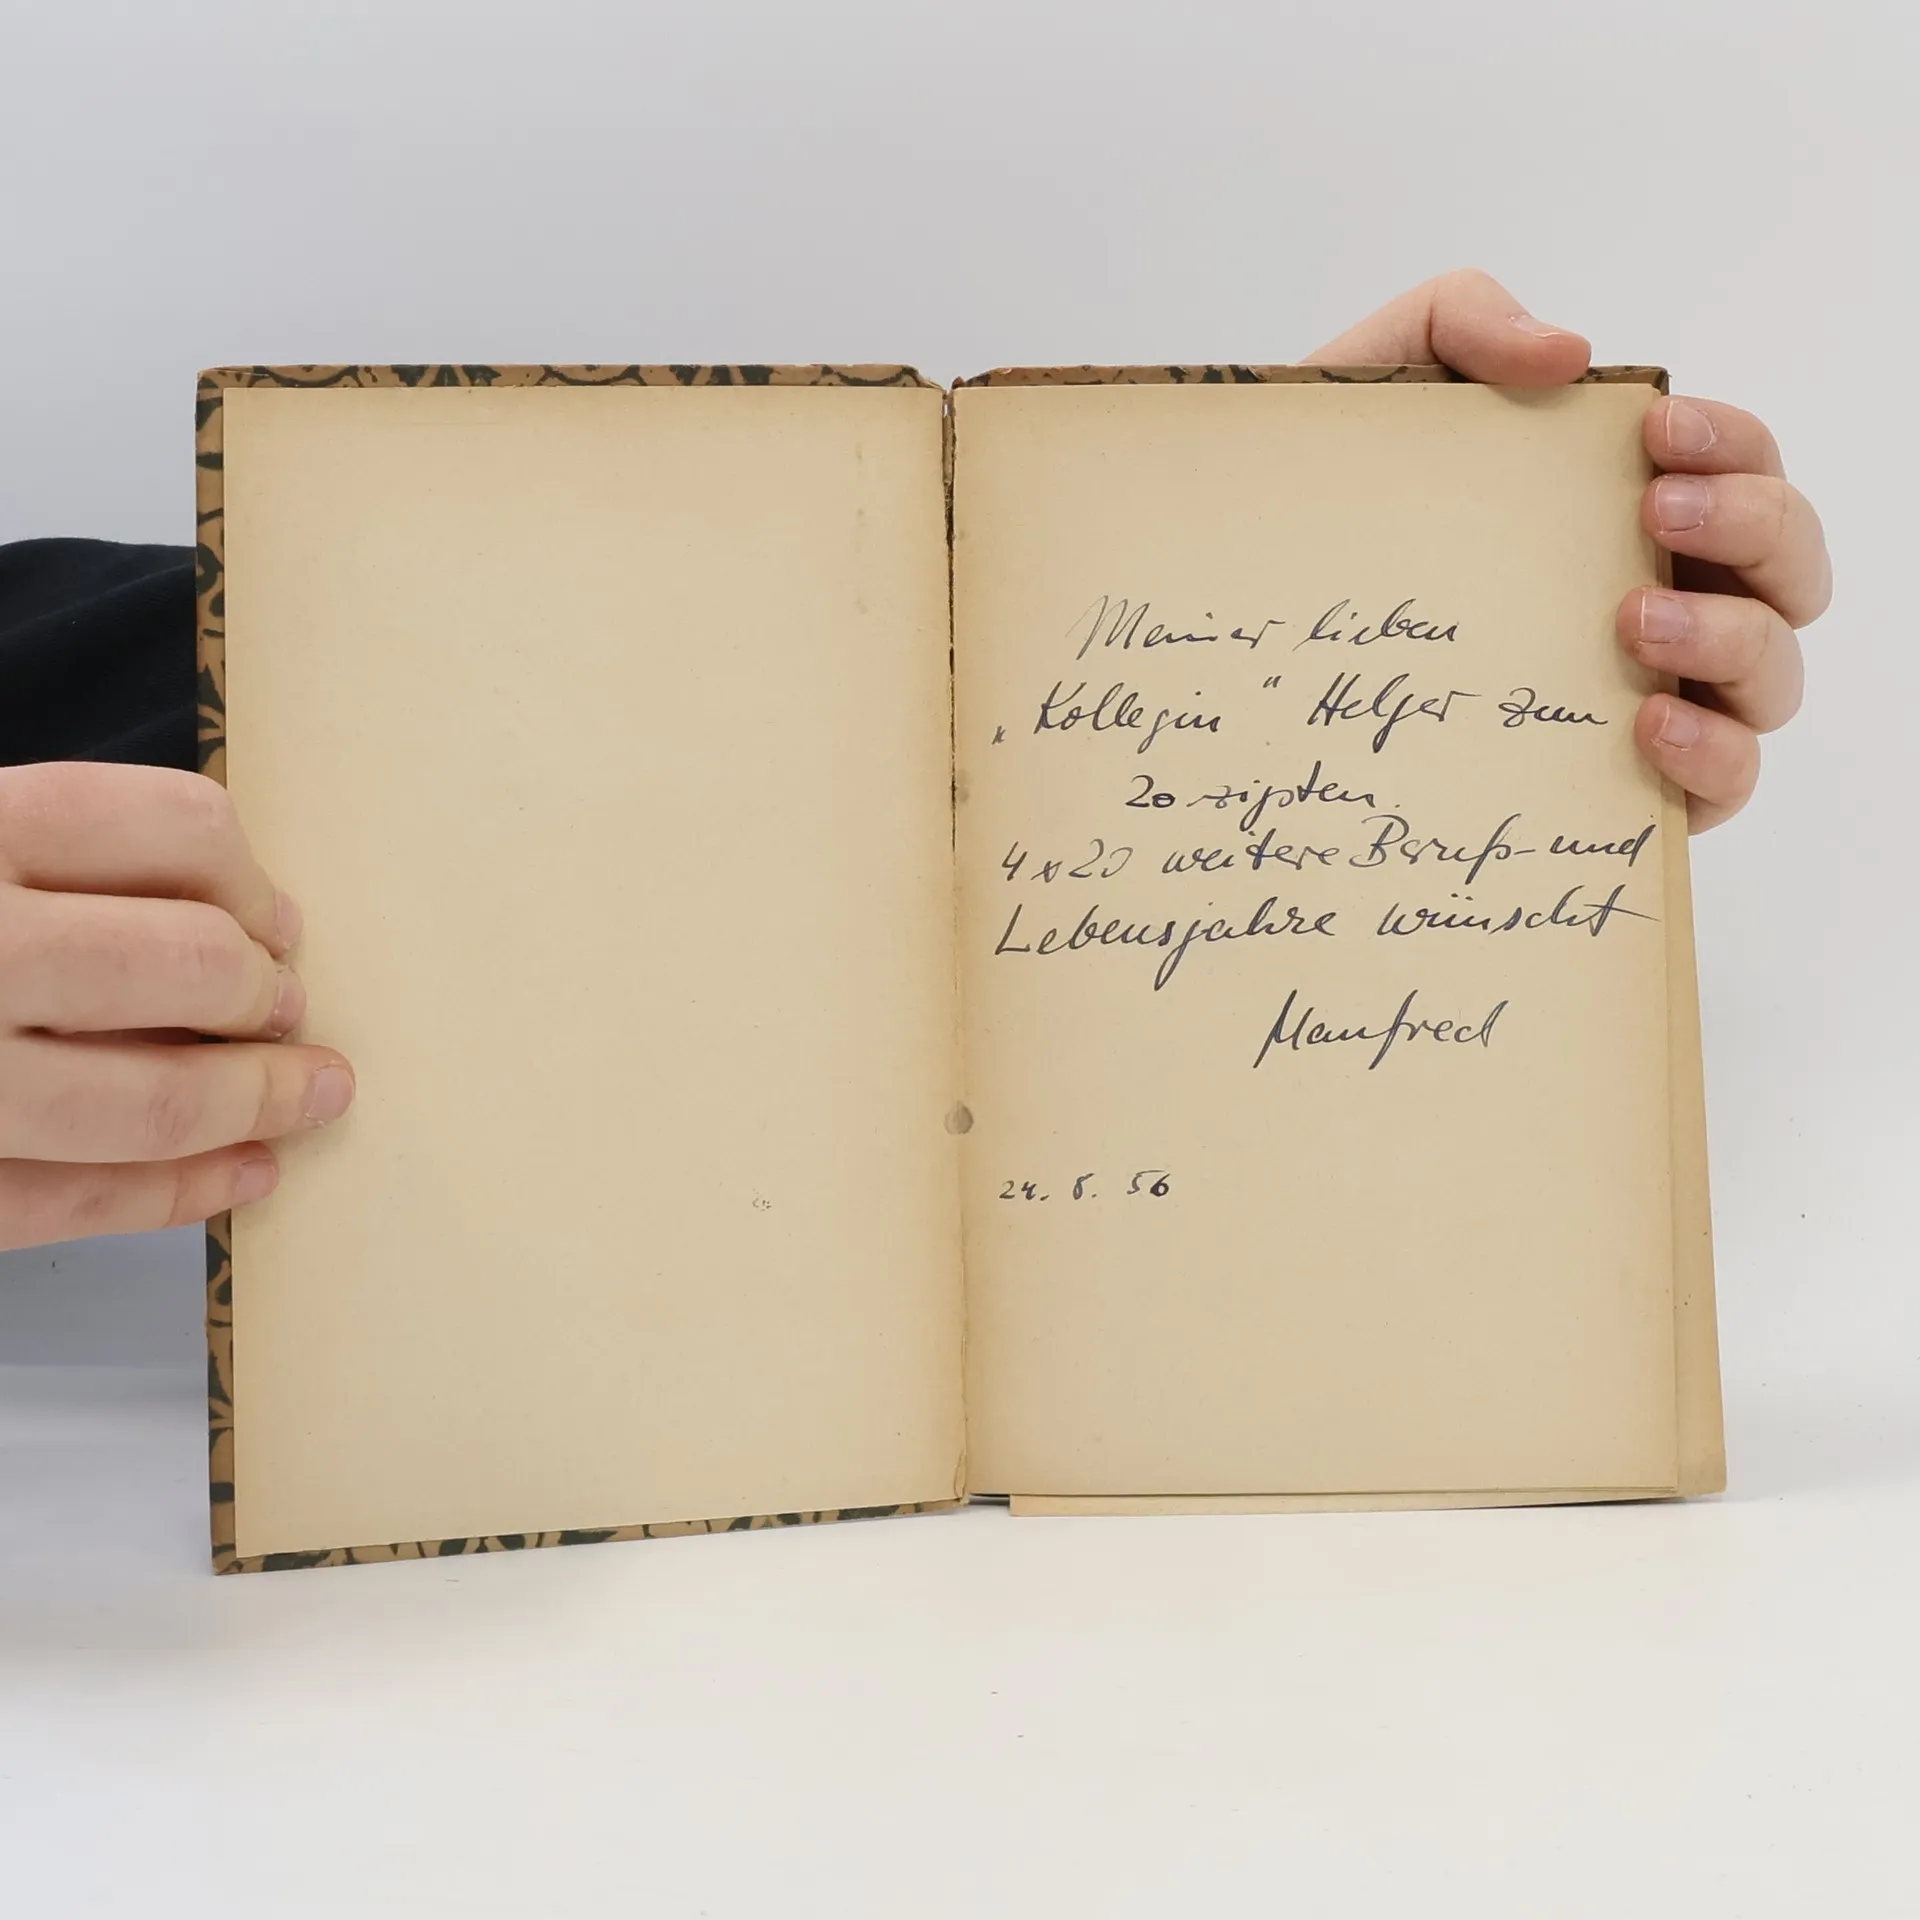 Meiner lieben
„Kollegin“ Helger zum
20 zigsten.
4 x 20 weitere Berufs- und
Lebensjahre wünscht
Manfred
24. 8. 56